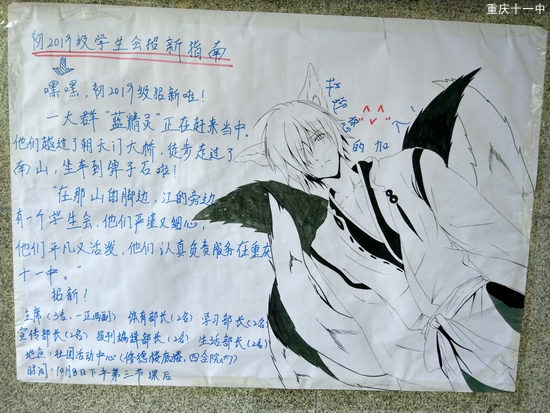 重庆十一中
初2019级学生会招新指南
嘿嘿，初2019级招新啦！
一大群“蓝精灵”正在赶来当中.
他们越过了朝天门大桥，徒步走过了
南山，坐车到弹子石啦！
“在那山的脚边，江的旁边
有一个学生会，他们严谨又细心，
他们平凡又活发，他们认真负责服务在重庆
十一中。”
招新！
主席(3名，一正两副) 体育部长(2名) 学习部长(2名)
宣传部长(2名) 报刊编辑部长(2名) 生活部长(2名)
地点：社团活动中心(修德楼底楼，四合院内)
时间：10月8日下午第三节课后
的加
个